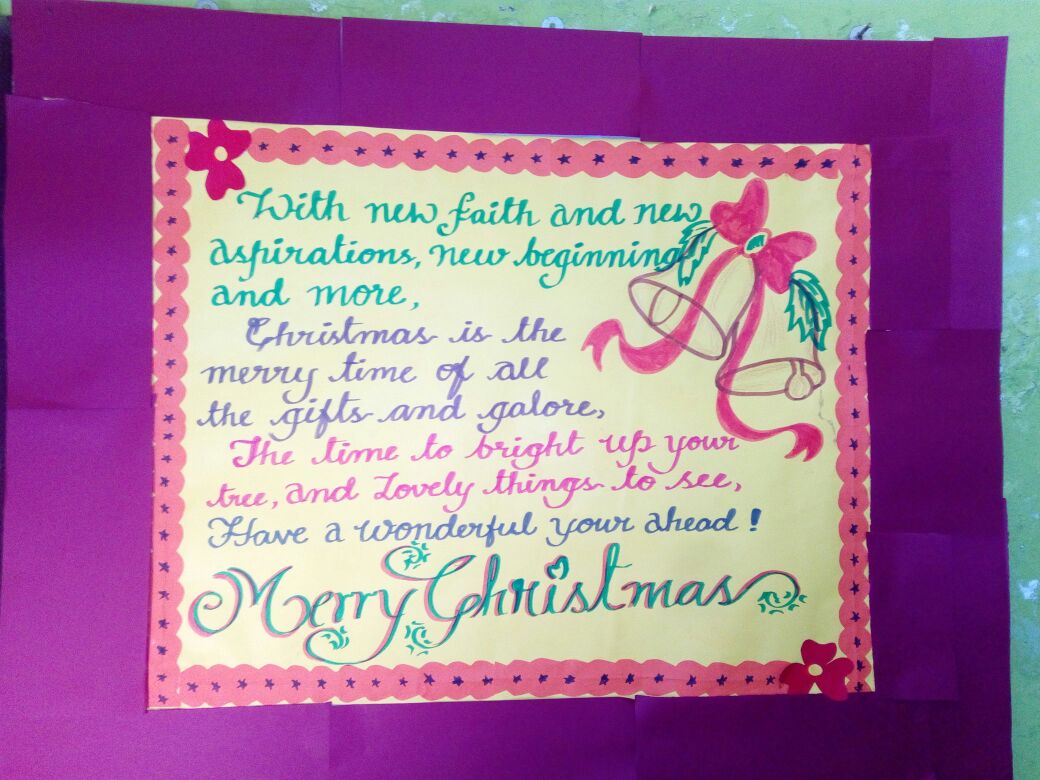 With new faith and new
aspirations, new beginning
and more,
Christmas is the
merry time of all
the gifts and galore,
The time to bright up your
tree, and Lovely things to see,
Have a wonderful your ahead !
Merry Christmas